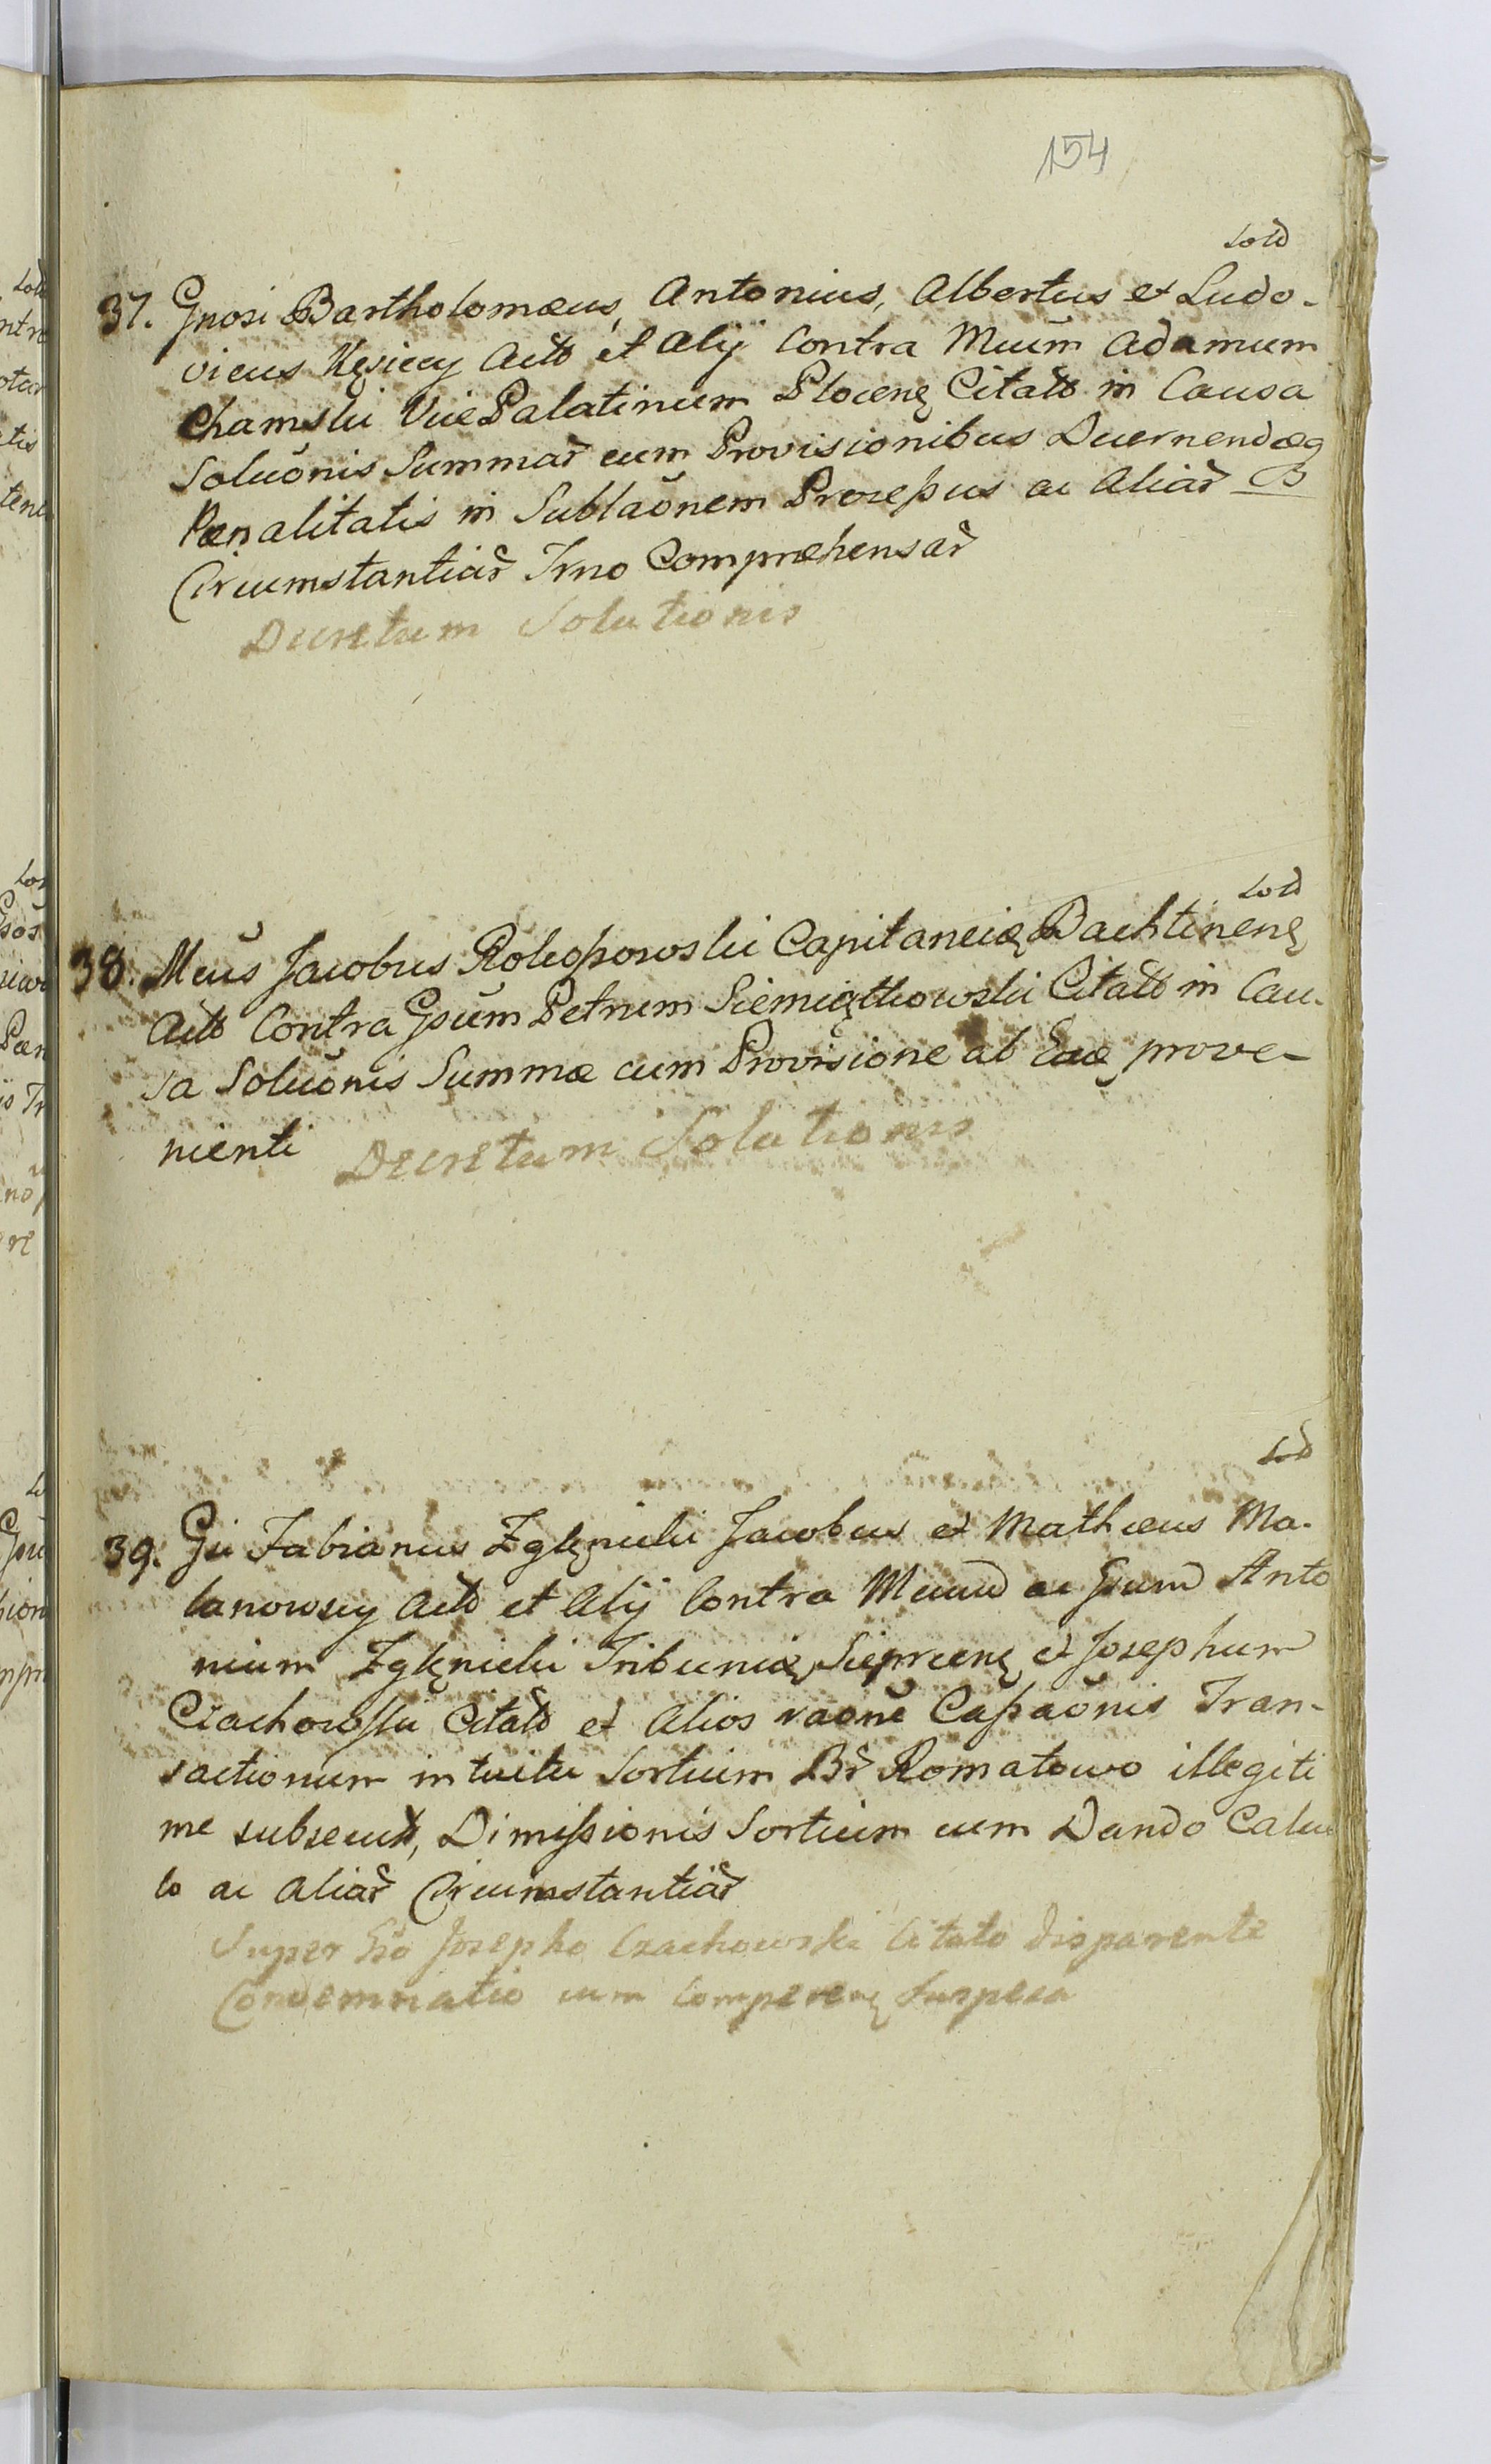 154
Sold
37. Gnosi Bartholomæus, Antonius, Albertus et Ludo-
vicus Kęsiccy Actō et Alij Contra Mcum Adamum
Chamski Vice Palatinum Plocenę Citatō in Causa
Soluōnis Summar̃ cum Provisionibus Decernendæq
Pœnalitatis in Sublaōnem Processus ac Aliar̃ B
Circumstantiar̃ Trno Comprœhensar̃
Decretum Solutionis
Sold
38. Mcus Jacobus Rokossowski Capitaneię Dachtinenę
Actō Contra Gsum Petrum Siemiątkowski Citatō in Cau-
sa Soluōnis Summæ cum Provisione ab Eaę prove-
nienti Decretum Solutionis
39. Gsi Fabianus Zglęnicki Jacobus et Mathæus Ma-
lanowscy Actō et Alij Contra Mcum ac Gsum Anto
nium Zglęnicki Tribunię Sieprcenę et Josephum
Czachowski Citatō et Alios raōne Cassaōnis Tran-
sactionum intuitu Sortium Br̃ Romatowo illegiti
me subsecut, Dimissionis Sortium cum Dando Calcu
lo ac Aliar̃ Circumstantiar̃
Super Gso Josepho Czachowski Citato disparente
Condemnatio cum Comperenę Suspesa